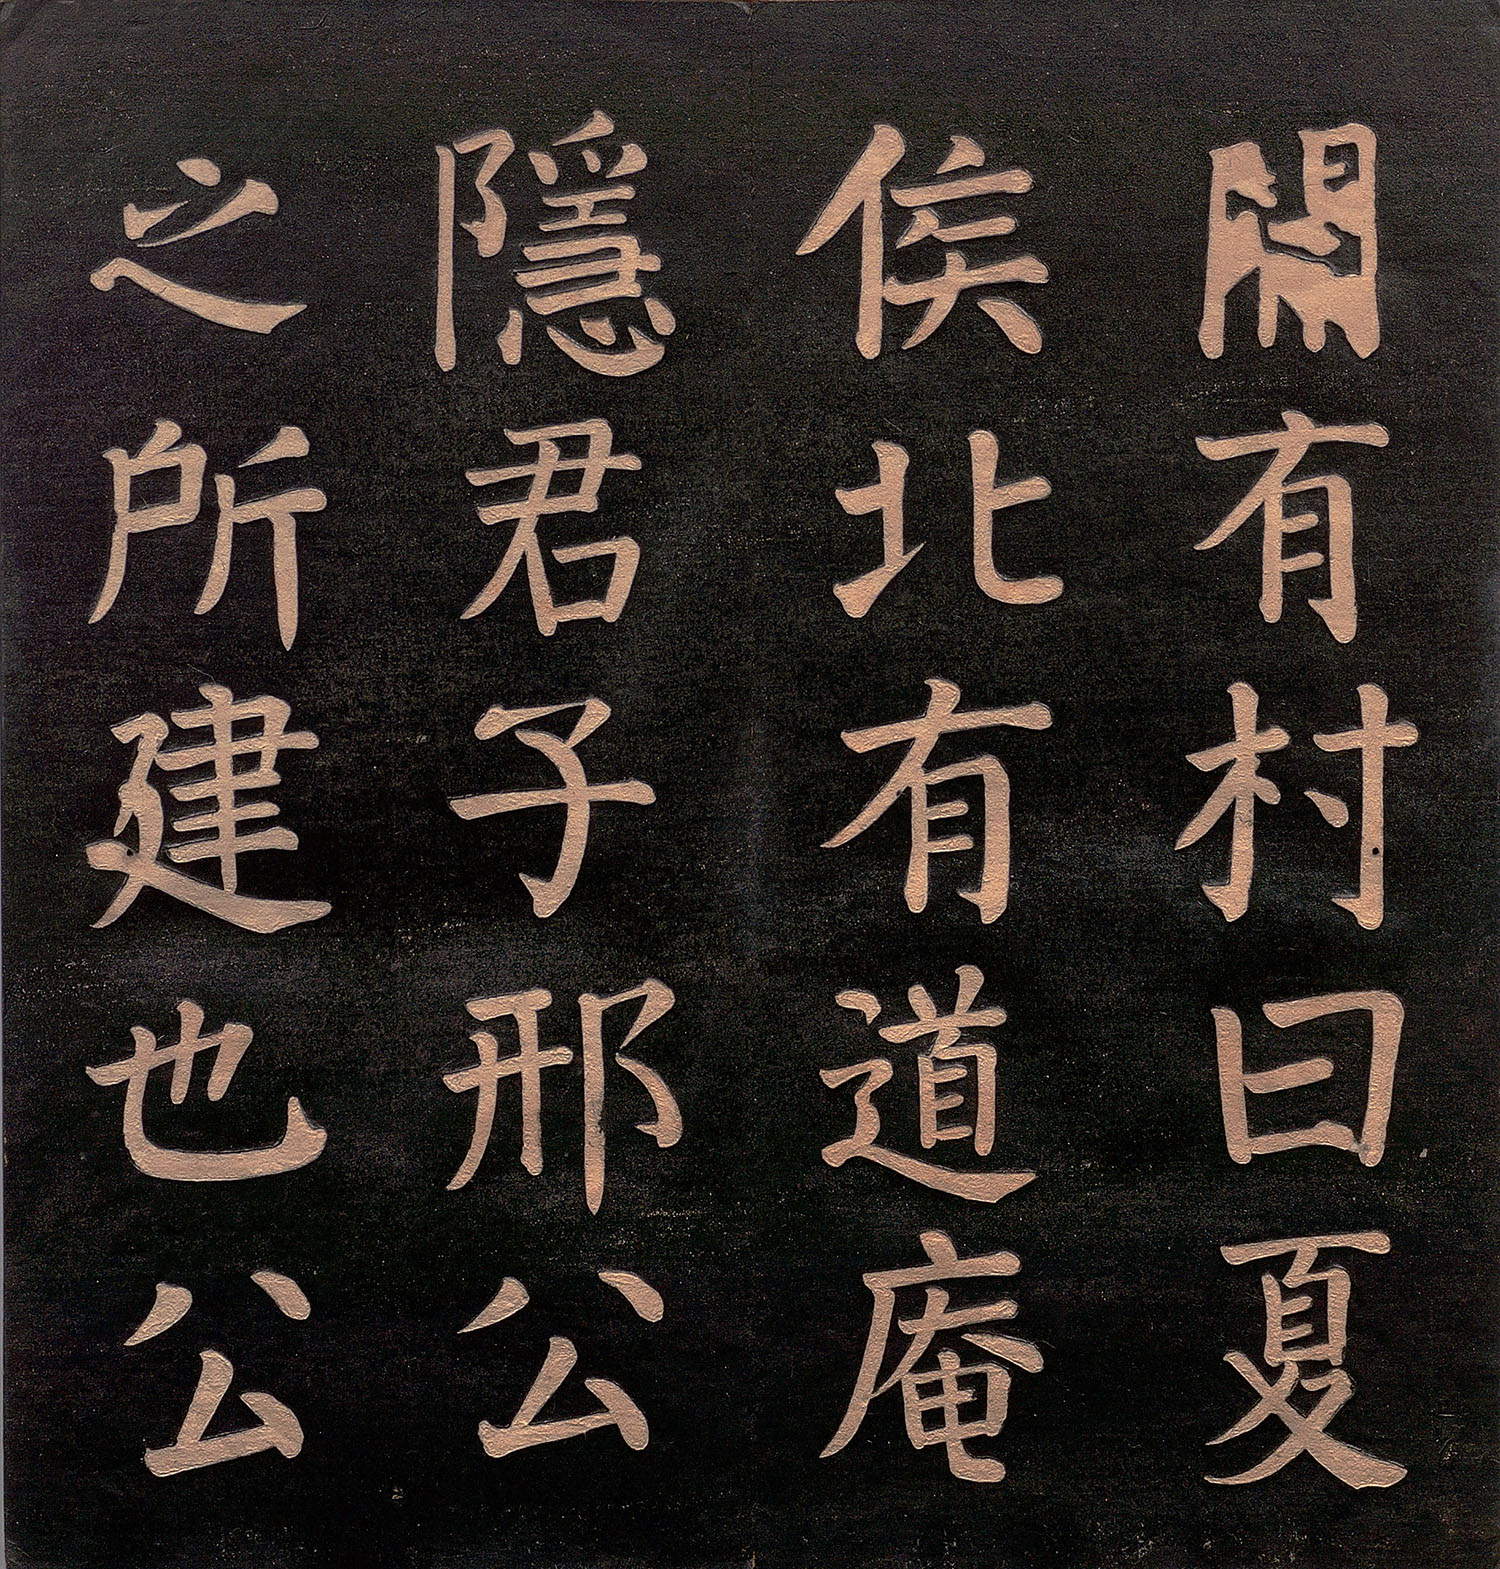 有村曰夏
侯北有道庵
隱君子邢公
之所建也公